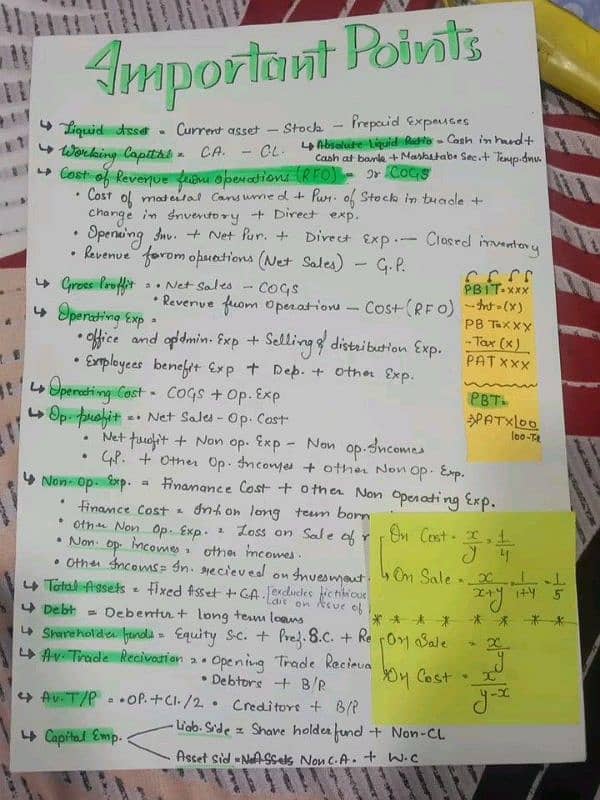 Important Points
↳ Liquid Asset = Current asset – Stock – Prepaid Expenses
↳ Working Capital = CA. – CL.
↳ Absolute Liquid Ratio = Cash in hand +
Cash at bank + Marketable Sec. + Temp. Inv.
↳ Cost of Revenue from operations (RFO) = or COGS
• Cost of material Consumed + Pur. of Stock in trade +
change in Inventory + Direct exp.
• Opening Inv. + Net Pur. + Direct Exp. – Closed inventory
• Revenue from operations (Net Sales) – G.P.
↳ Gross Proffit = • Net Sales – COGS
• Revenue from Operations – Cost (RFO)
↳ Operating Exp =
• Office and admin. Exp + Selling & distribution Exp.
• Employees benefit Exp + Dep. + Other Exp.
↳ Operating Cost = COGS + Op. Exp
↳ Op. profit = • Net Sales - Op. Cost
• Net profit + Non op. Exp – Non op. Incomes
• G.P. + Other Op. Incomes + other Non Op. Exp.
↳ Non-Op. Exp. = Finanance Cost + other Non Operating Exp.
• Finance Cost = Int. on long term borr
• other Non Op. Exp. = Loss on Sale of
• Non. op incomes = other incomes.
• Other Incoms = In. recieved on Invesment
↳ Total Assets = Fixed Asset + C.A. [excludes fictitious
on issue of
↳ Debt = Debentur + long term loans
↳ Shareholder funds = Equity S.C. + Pref. S.C. + Re
↳ Av. Trade Recivation = • Opening Trade Recieva
• Debtors + B/R
↳ Av. T/P = • OP. + Cl. /2 • Creditors + B/P
↳ Capital Emp.
Liab. Side = Share holder fund + Non-CL
Asset Sid = Non C.A. + W.C
PBIT = xxx
– Int = (x)
PBT = xxx
- Tax (x)
PAT xxx
PBT =
⇒ PAT × 100
100-Tax
On Cost = x/y = 1/4
↳ On Sale = x/x+y = 1/1+4 = 1/5
* * * * * * *
On Sale = x/y
On Cost = x/y-x